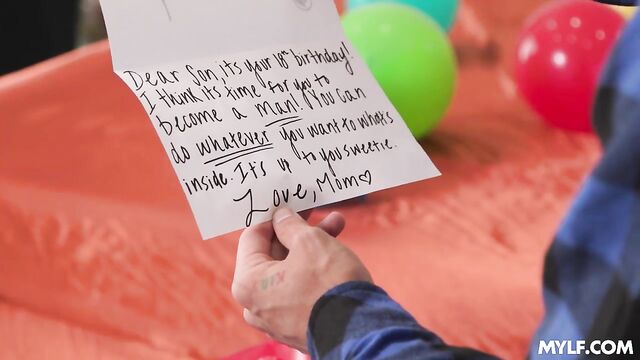 Dear Son, it's your 18th birthday!
I think it's time for you to
become a man! You can
do whatever you want to what's
inside. It's up to you sweetie.
Love, Mom♡
MYLF.COM